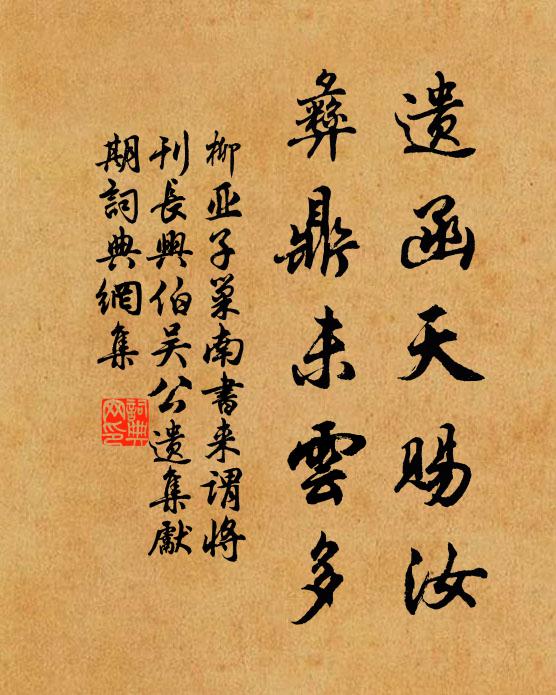 遗函天赐汝
彝鼎未雲多
柳亚子巢南書来谓将
刊長興伯吴公遗集獻
期詞典網集
詞典
网印